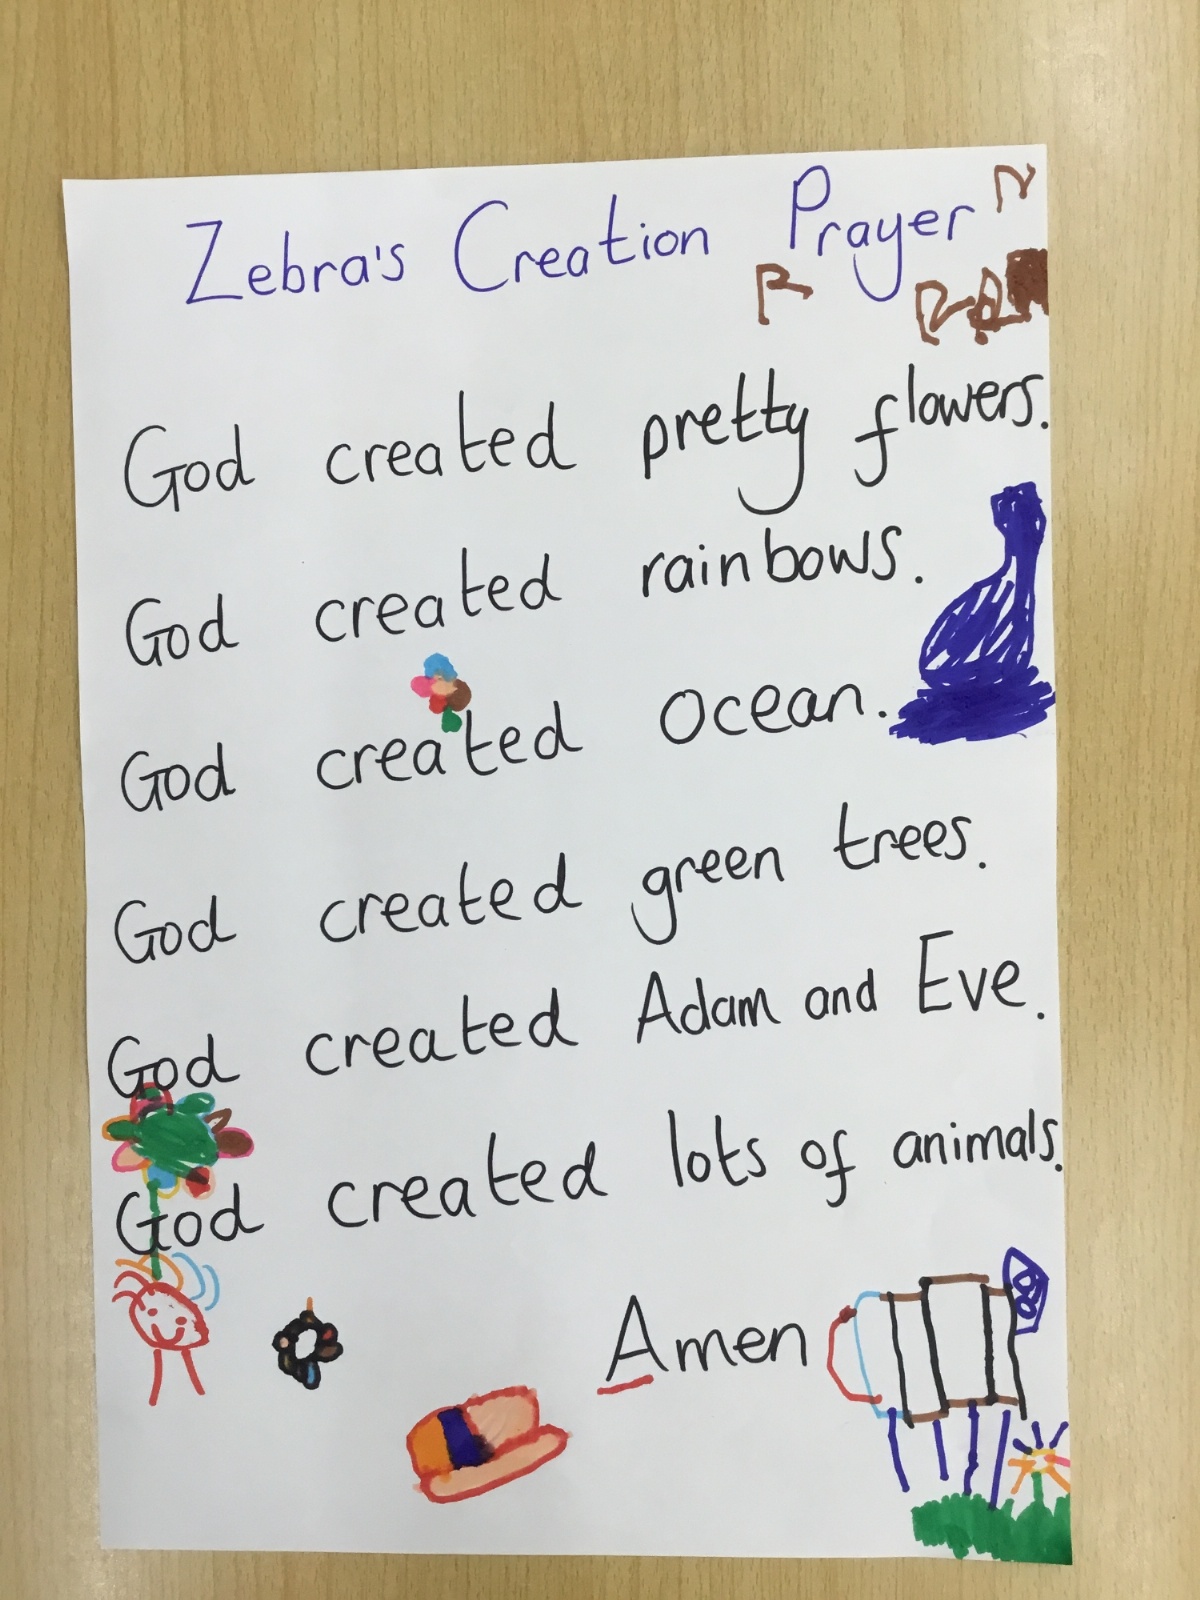 Zebra's Creation Prayer
God created pretty flowers.
God created rainbows.
God created ocean.
God created green trees.
God created Adam and Eve.
God created lots of animals.
Amen